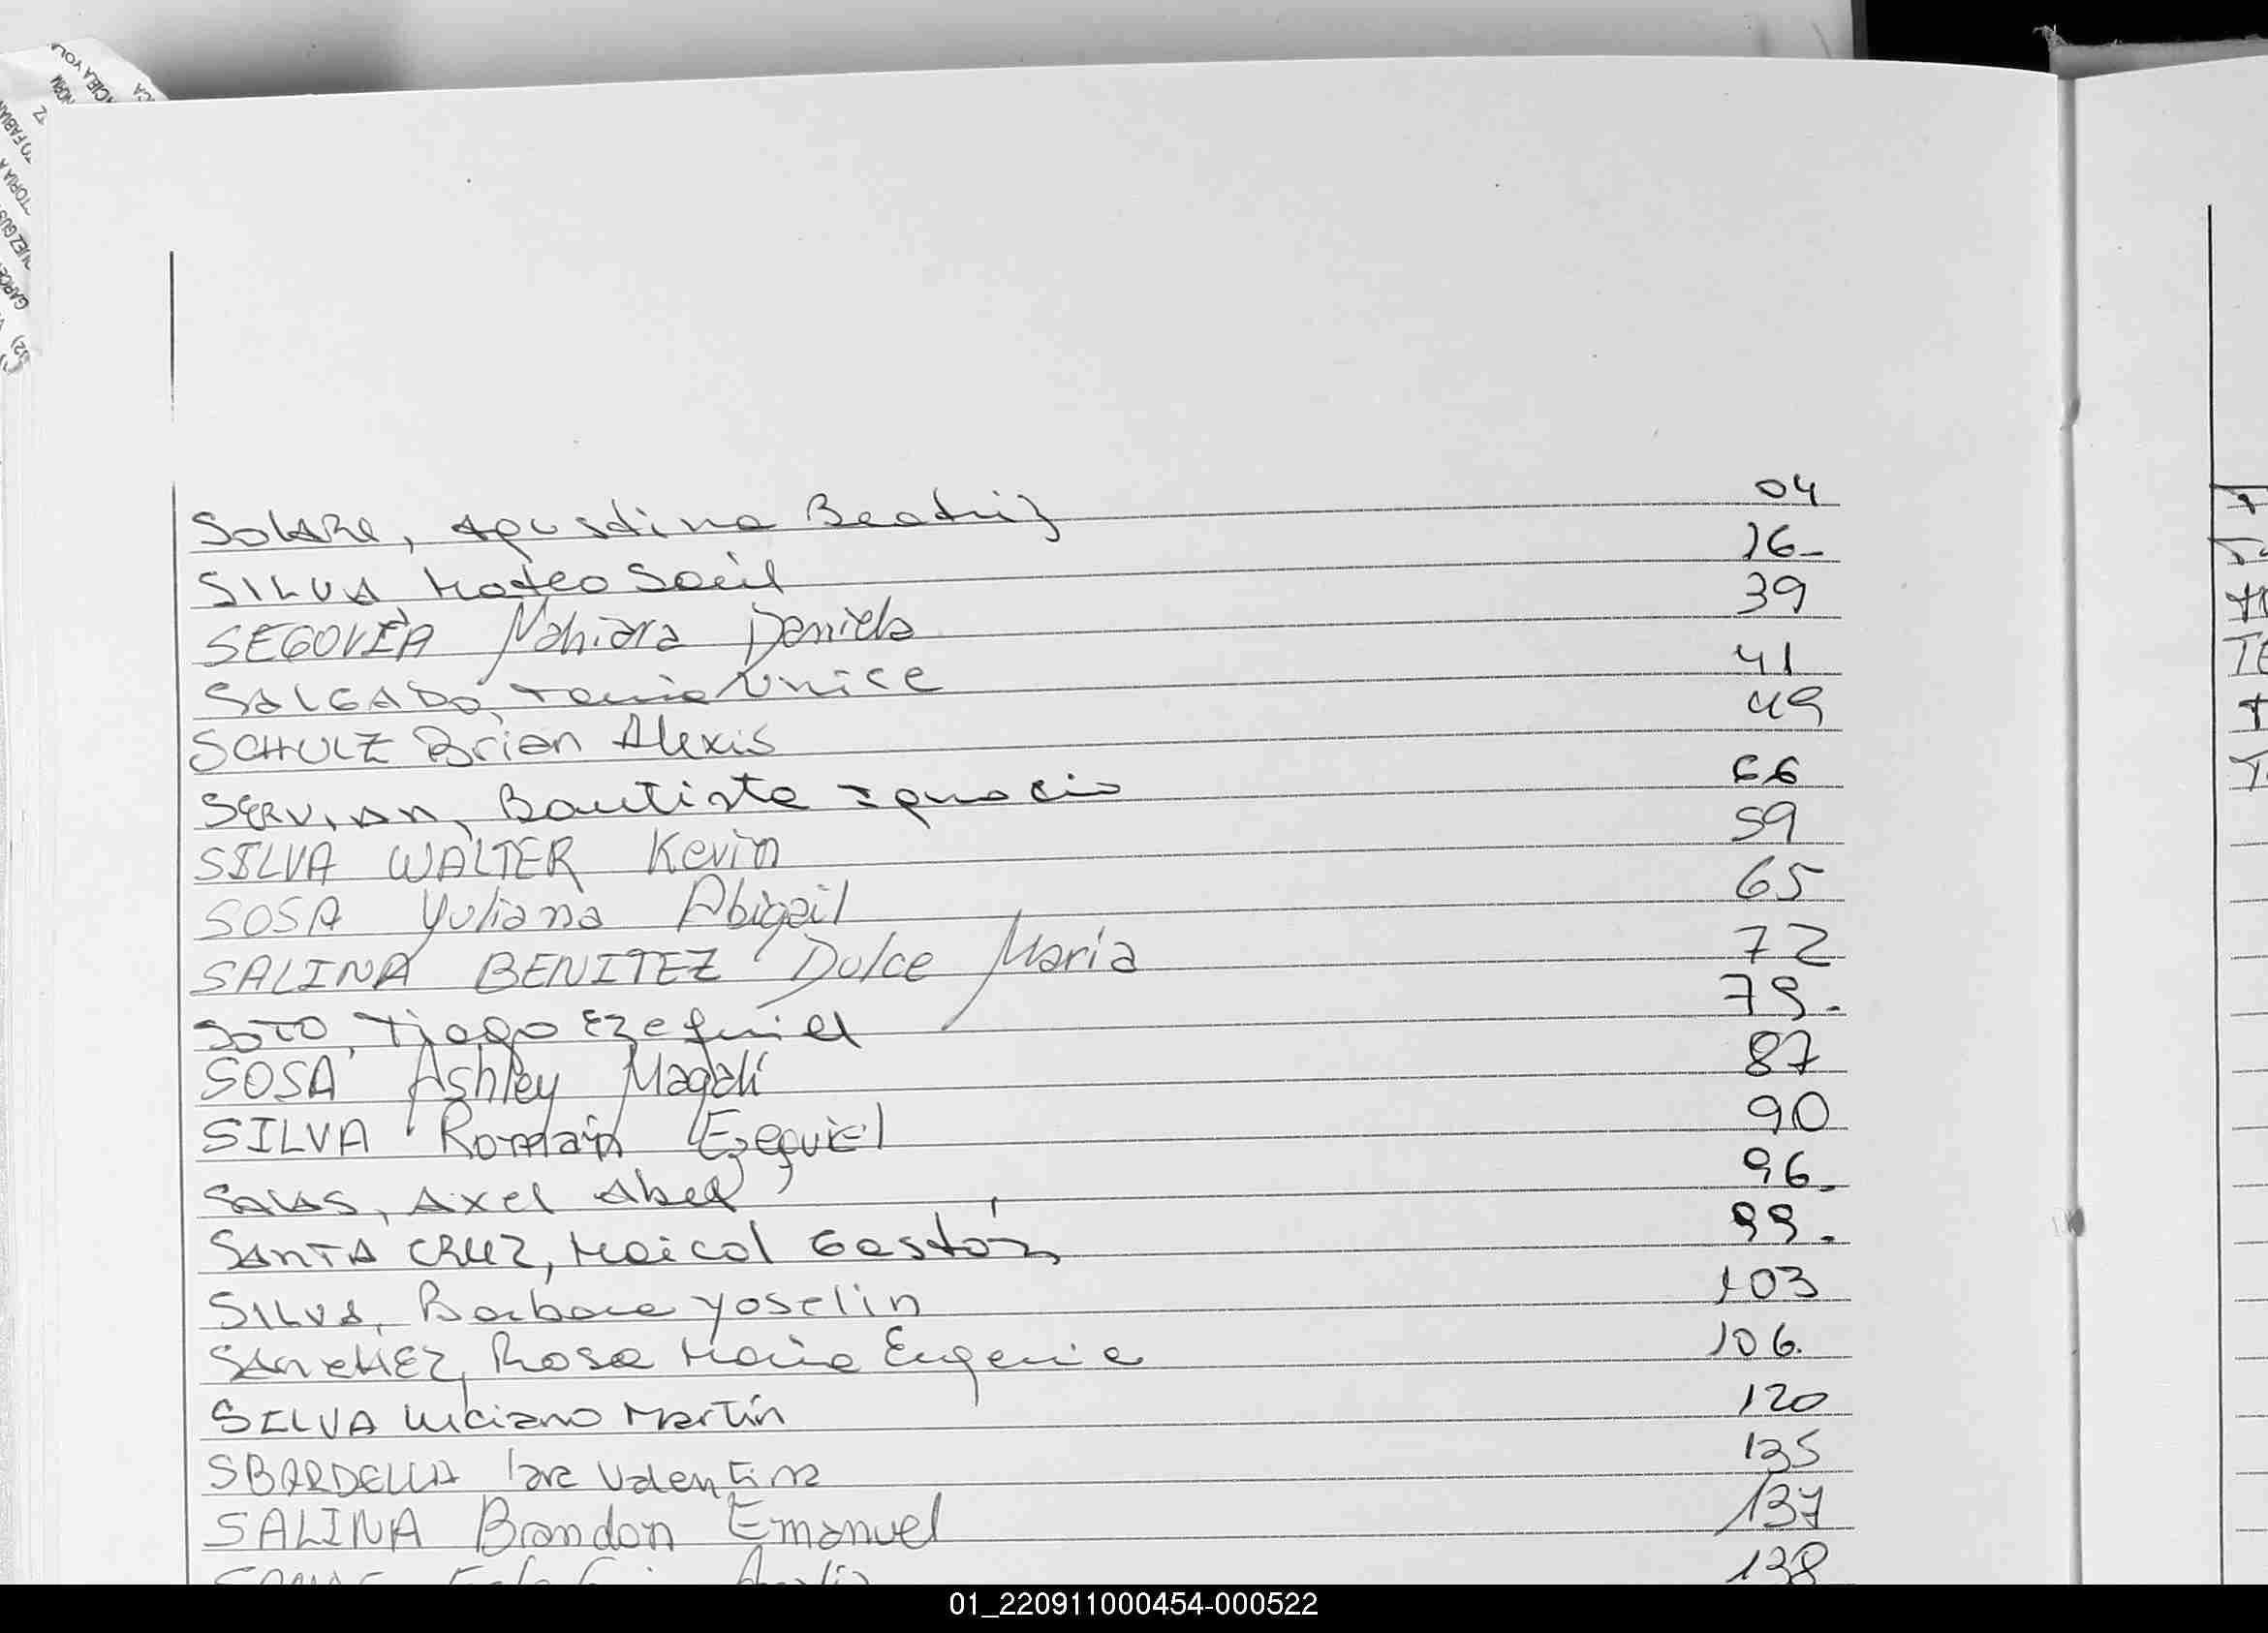 SOLARE, Agustina Beatriz 04
SILVA Mateo Saúl 16-
SEGOVIA Nahiara Daniela 39
SALGADO, Tania Unice 41
SCHULZ Brian Alexis 49
SERVIAN, Bautista Ignacio 66
SILVA WALTER Kevin 59
SOSA Yuliana Abigail 65
SALINA BENITEZ Dulce Maria 72
SOTO, Tiago Ezequiel 79.
SOSA Ashley Magalí 87
SILVA Román Ezequiel 90
SALAS, Axel Abel 96.
SANTA CRUZ, Maicol Gastón 99.
SILVA, Barbara Yoselin 103
SANCHEZ, Rosa Maria Eugenia 106.
SILVA Luciano Martín 120
SBARDELLA Valentina 135
SALINA Brandon Emanuel 137
138
01_220911000454-000522